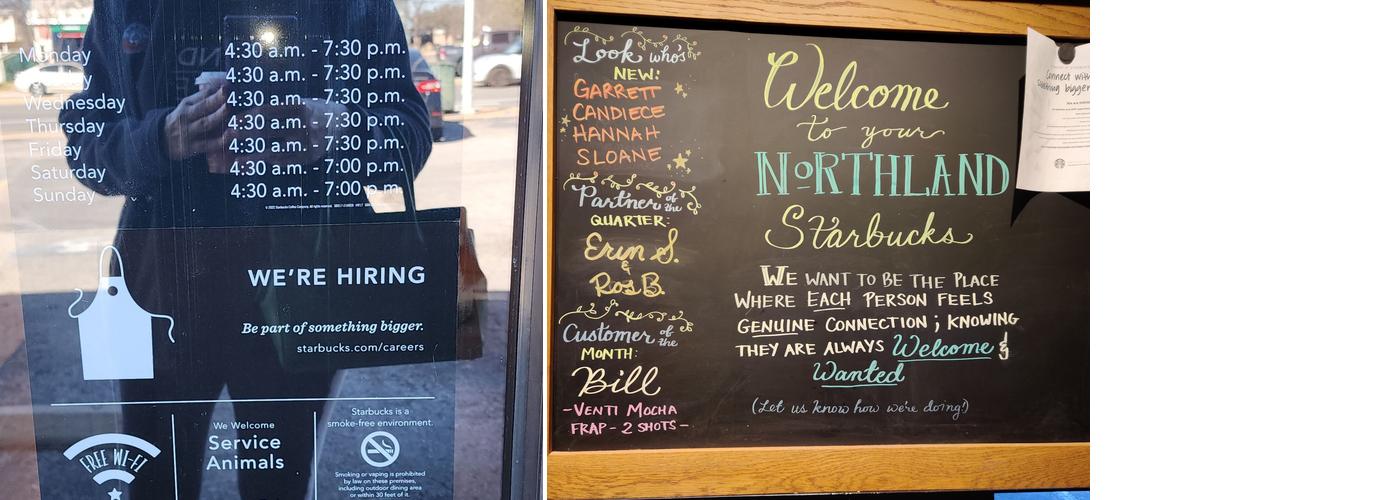 Monday 4:30 a.m. - 7:30 p.m.
4:30 a.m. - 7:30 p.m.
Wednesday 4:30 a.m. - 7:30 p.m.
Thursday 4:30 a.m. - 7:30 p.m.
Friday 4:30 a.m. - 7:30 p.m.
Saturday 4:30 a.m. - 7:00 p.m.
Sunday 4:30 a.m. - 7:00 p.m.
WE'RE HIRING
Be part of something bigger.
starbucks.com/careers
FREE WI-FI
We Welcome
Service
Animals
Starbucks is a
smoke-free environment.
Smoking or vaping is prohibited
by law on these premises,
including outdoor dining area
or within 30 feet of it.
Look who's
NEW:
GARRETT
CANDIECE
HANNAH
SLOANE
Partner of the
QUARTER:
Erin S.
&
Ros B.
Customer of the
MONTH:
Bill
-VENTI MOCHA
FRAP - 2 SHOTS -
Welcome
to your
NORTHLAND
Starbucks
WE WANT TO BE THE PLACE
WHERE EACH PERSON FEELS
GENUINE CONNECTION ; KNOWING
THEY ARE ALWAYS Welcome &
Wanted
(Let us know how we're doing!)
Connect with
something bigger